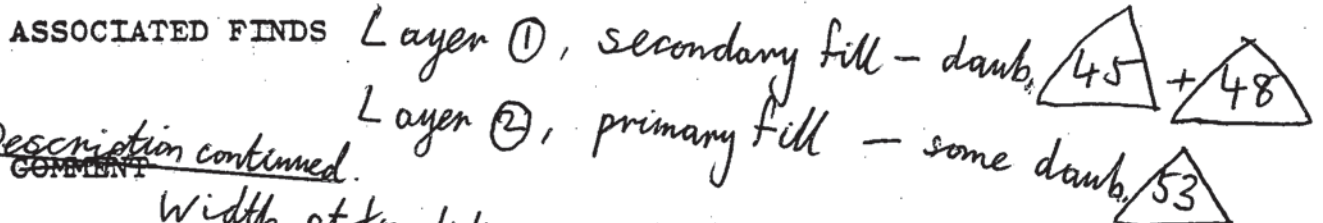 ASSOCIATED FINDS Layer ①, secondary fill – daub, 45 + 48
Layer ②, primary fill – some daub, 53
Description continued.
COMMENT
Width at